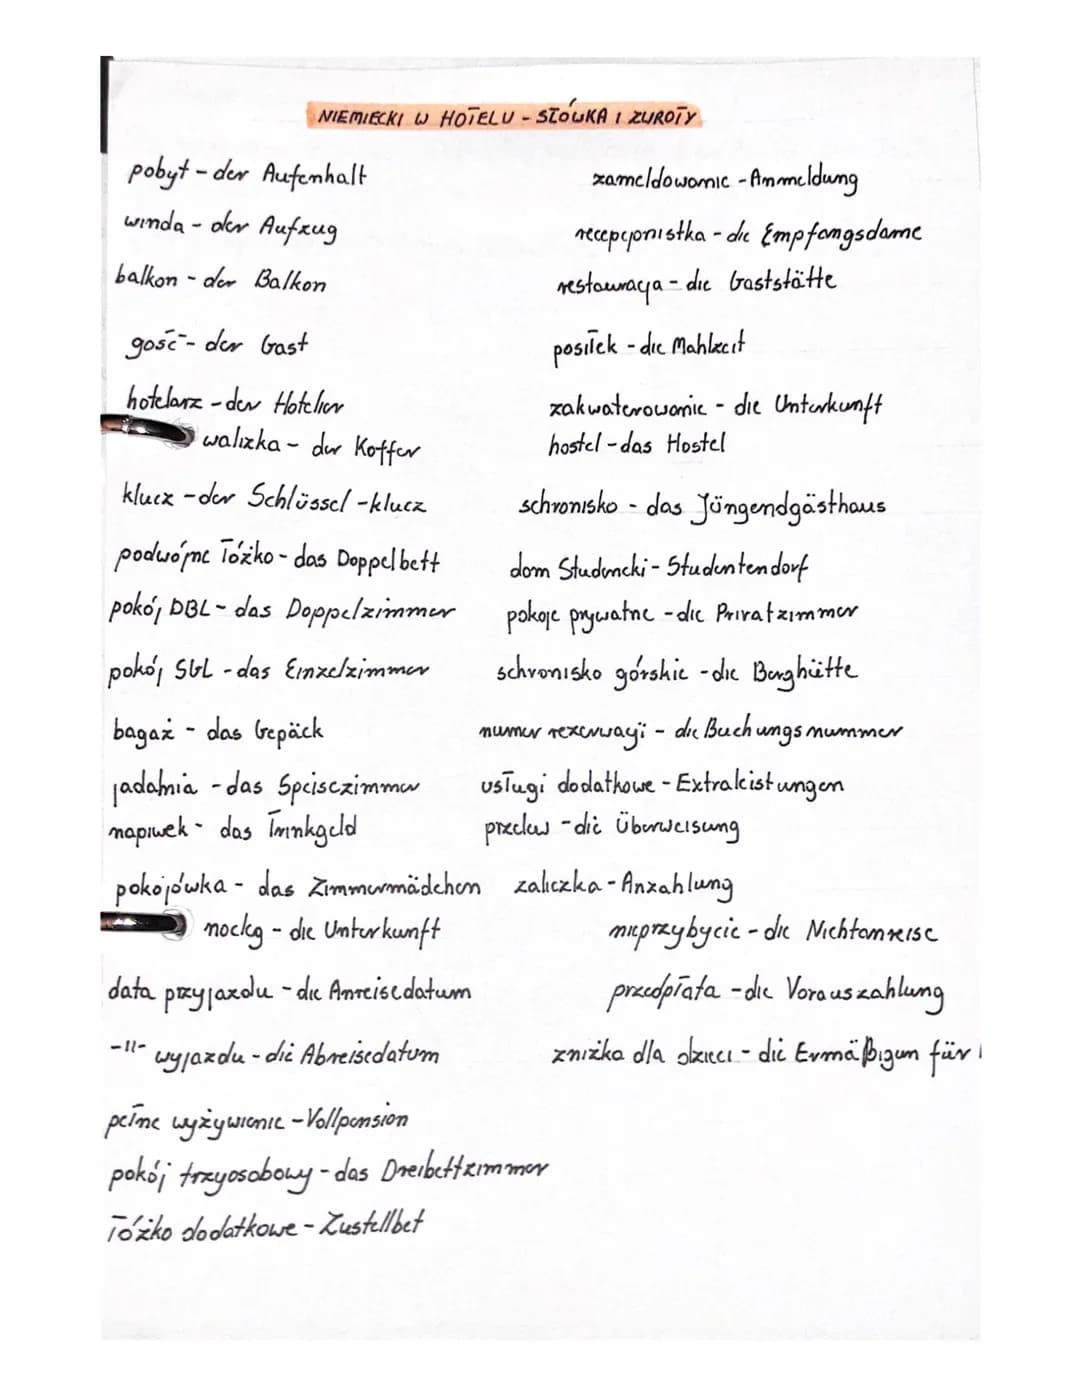 NIEMIECKI W HOTELU - SŁÓWKA I ZWROTY
pobyt - der Aufenhalt
winda - der Aufzug
balkon - der Balkon
gość - der Gast
hotelarz - der Hotelier
walizka - der Koffer
klucz - der Schlüssel - klucz
podwójne łóżko - das Doppelbett
pokój DBL - das Doppelzimmer
pokój SGL - das Einzelzimmer
bagaż - das Gepäck
jadalnia - das Speisezimmer
napiwek - das Trinkgeld
pokojówka - das Zimmermädchen
nocleg - die Unterkunft
data przyjazdu - die Anreisedatum
-11- wyjazdu - die Abreisedatum
pełne wyżywienie - Vollpension
pokój trzyosobowy - das Dreibettzimmer
łóżko dodatkowe - Zustellbet
zameldowanie - Anmeldung
recepcjonistka - die Empfangsdame
restauracja - die Gaststätte
posiłek - die Mahlzeit
zakwaterowanie - die Unterkunft
hostel - das Hostel
schronisko - das Jüngendgästhaus
dom Studencki - Studentendorf
pokoje prywatne - die Privatzimmer
schronisko górskie - die Berghütte
numer rezerwacji - die Buchungsnummer
usługi dodatkowe - Extraleistungen
przelew - die Überweisung
zaliczka - Anzahlung
nieprzybycie - die Nichtanreise
przedpłata - die Vorauszahlung
zniżka dla dzieci - die Ermäßigun für